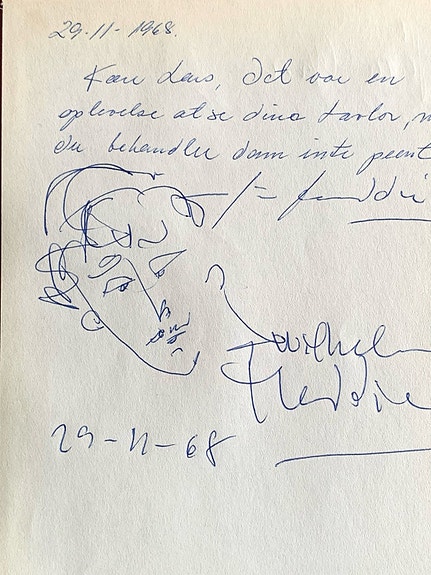 29-11-1968.
Kære Lars, det var en
oplevelse at se dine tavlor,
du behandler dam inte
Wilhelm
Freddie
29-11-68